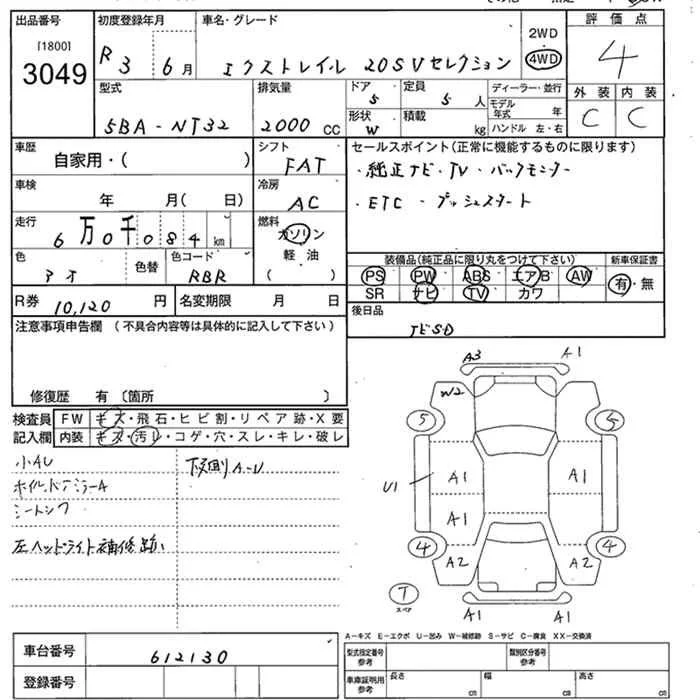 出品番号 初度登録年月 車名・グレード 2WD 評価点
[1800]
3049 R3 6月 エクストレイル 20SVセレクション 4WD 4
型式 排気量 ドア 5 定員 5人 ディーラー・並行 外装 内装
モデル年式 年
5BA-NT32 2000cc 形状 W 積載 kg ハンドル 左・右 C C
車歴 自家用・( ) シフト FAT セールスポイント(正常に機能するものに限ります)
・純正ナビ・TV・バックモニター
車検 年 月( 日) 冷房 AC
・ETC・プッシュスタート
走行 6万0千084km 燃料 ガソリン
軽油
( )
色 アオ 色替 色コード RBR
装備品(純正品に限り丸をつけて下さい) 新車保証書
PS PW ABS エアB AW 有・無
SR ナビ TV カワ
R券 10,120円 名変期限 月 日
後日品
ナビSD
注意事項申告欄 (不具合内容等は具体的に記入して下さい)
修復歴 有 〔箇所 〕
検査員 FW キズ・飛石・ヒビ割・リペア跡・X要
記入欄 内装 キズ・汚レ・コゲ・穴・スレ・キレ・破レ
小AU
ホイル、ドアミラーA
シートシワ
左ヘッドライト補修跡
A3 A1
W2
5 5
U1 A1 A1
A1
4 4
A2 A2
T
スペア
A1 A1
A-キズ E-エクボ U-凹み W-補修跡 S-サビ C-腐食 XX-交換済
車台番号 612130
登録番号
型式指定番号 参考 類別区分番号 参考
車庫証明用 参考 長さ cm 幅 cm 高さ cm